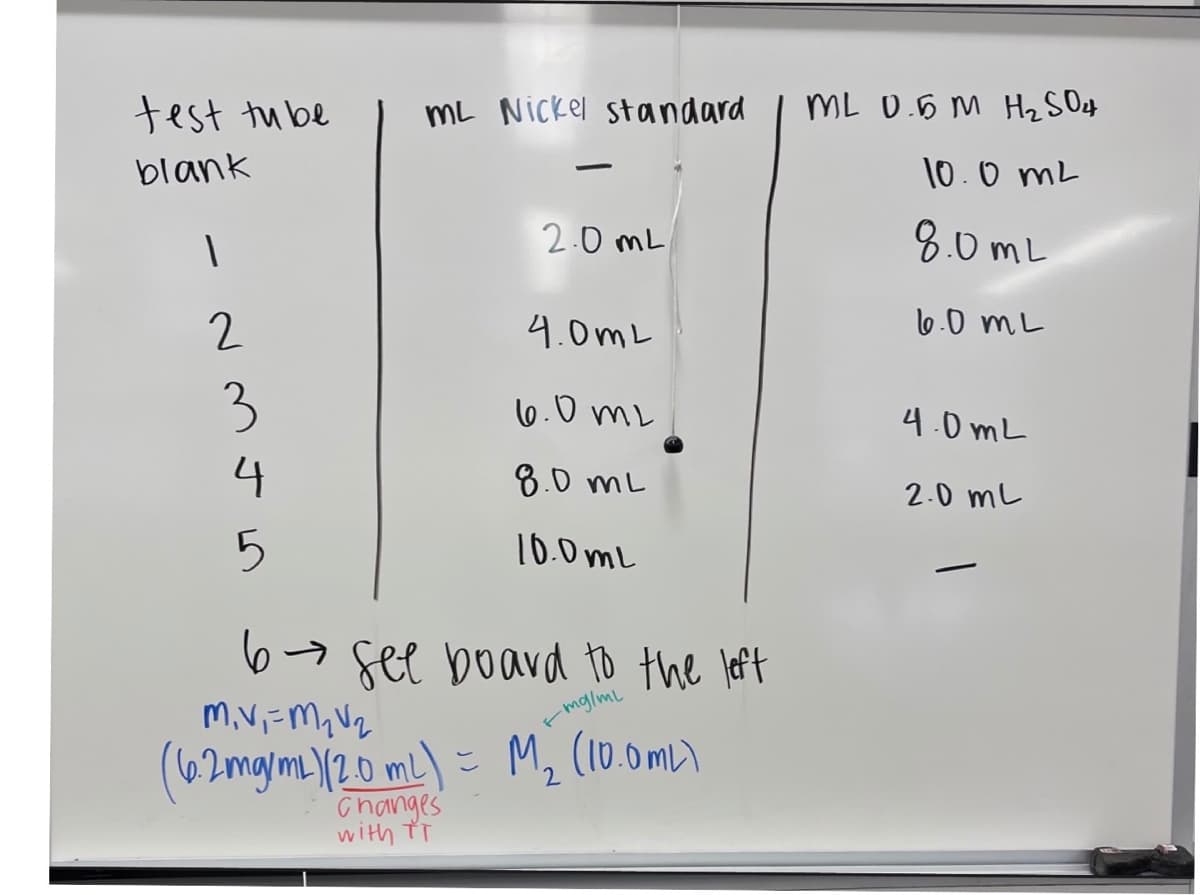 test tube | mL Nickel standard | mL 0.5 M H₂SO₄
blank — 10.0 mL
1 2.0 mL 8.0 mL
2 4.0 mL 6.0 mL
3 6.0 mL 4.0 mL
4 8.0 mL 2.0 mL
5 10.0 mL —
6 → see board to the left
M₁V₁=M₂V₂
← mg/mL
(6.2mg/mL)(2.0 mL) = M₂ (10.0 mL)
Changes
with TT